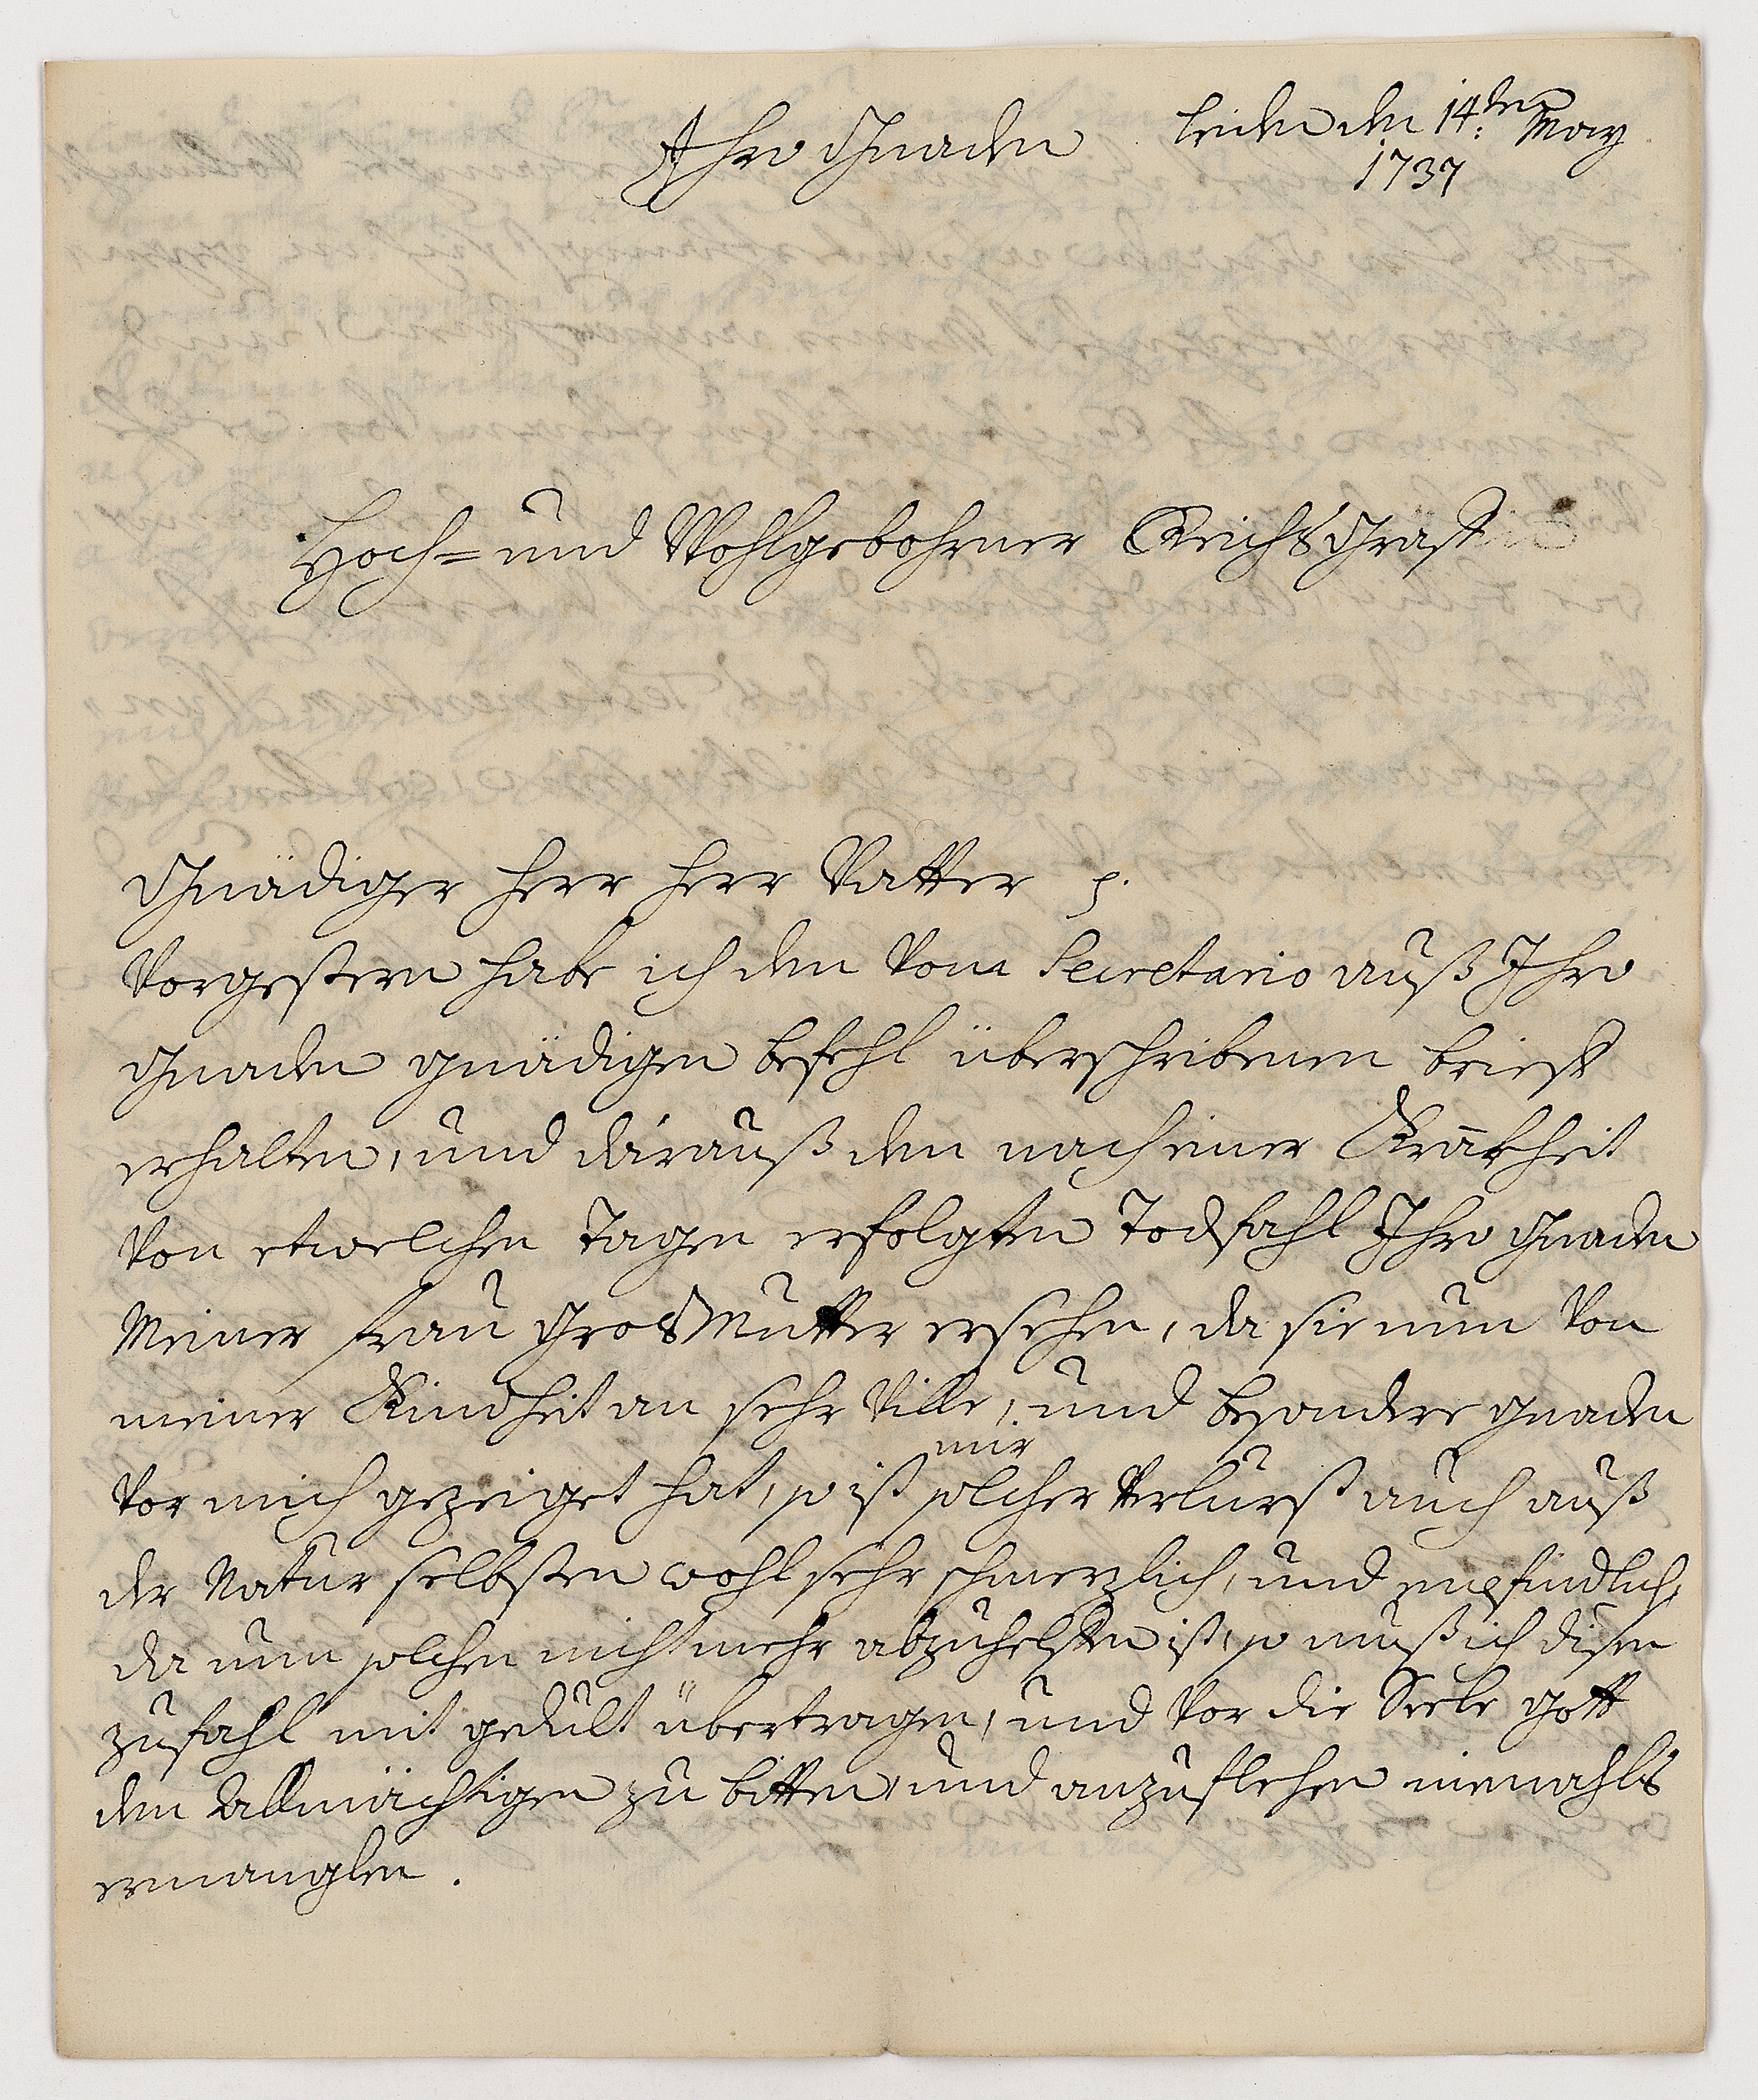 Ihro Gnaden
leiden den 14:den May
1737
Hoch= und Wohlgebohrner ReichsGraff
Gnädiger herr herr Vatter p.
Vorgestern habe ich den vom Secretario auß Ihro
Gnaden gnädigen befehl überschribenen brieff
erhalten, und darauß den nach einer Kranckheit
von etwelchen tagen erfolgten Todfahl Ihro gnaden
Meiner frau GrosMutter ersehen, da sie nun von
meiner Kindheit an sehr Ville, und besondere gnaden
mir
vor mich gezeiget hat, so ist solcher Verlurst auch auß
der Natur selbsten wohl sehr schmerzlich, und empfindlich,
da nun solchen nicht mehr abzuhelffen ist, so muß ich disen
zufahl mit gedult übertragen, und vor die Seele gott
den Allmächtigen zu bitten, und anzuflehen niemahls
ermanglen.